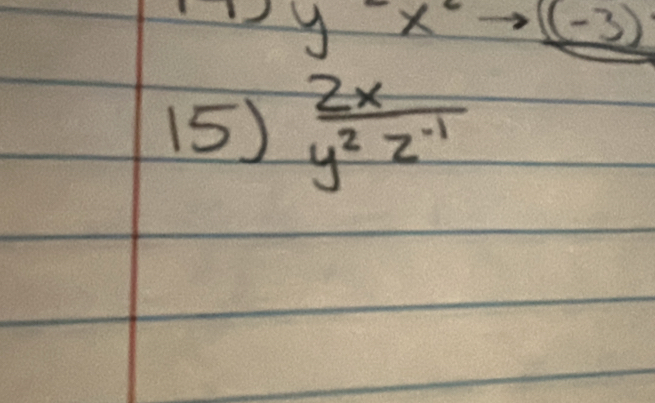 14) y x² → ((-3)
15) 2x / y² z⁻¹